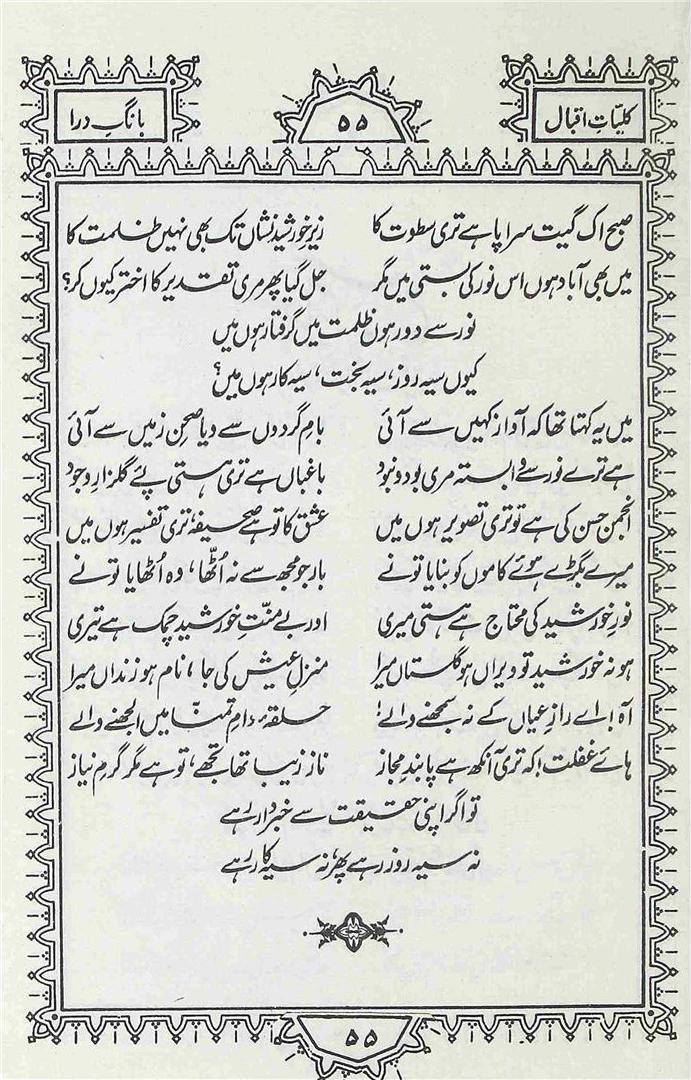 کلیّاتِ اقبال ۵۵ بانگِ درا
صبح اک گیت سراپا ہے تری سطوت کا زیرِ خورشید نشاں تک بھی نہیں ظلمت کا
میں بھی آباد ہوں اس نور کی بستی میں مگر جل گیا پھر مری تقدیر کا اختر کیوں کر؟
نور سے دور ہوں ظلمت میں گرفتار ہوں میں
کیوں سیہ روز، سیہ بخت، سیہ کار ہوں میں؟
میں یہ کہتا تھا کہ آواز کہیں سے آئی بامِ گردوں سے و یا صحنِ زمیں سے آئی
ہے ترے نور سے وابستہ مری بود و نبود باغباں ہے تری ہستی پئے گلزارِ وجود
انجمن حسن کی ہے تو، تری تصویر ہوں میں عشق کا تو ہے صحیفہ، تری تفسیر ہوں میں
میرے بگڑے ہوئے کاموں کو بنایا تو نے بار جو مجھ سے نہ اُٹھّا، وہ اُٹھایا تو نے
نورِ خورشید کی محتاج ہے ہستی میری اور بے منّتِ خورشید چمک ہے تیری
ہو نہ خورشید تو ویراں ہو گلستاں میرا منزلِ عیش کی جا، نام ہو زنداں میرا
آہ! اے رازِ عیاں کے نہ سمجھنے والے! حلقۂ دامِ تمنّا میں الجھنے والے
ہائے غفلت! کہ تری آنکھ ہے پابندِ مجاز ناز زیبا تھا تجھے، تو ہے مگر گرمِ نیاز
تو اگر اپنی حقیقت سے خبردار رہے
نہ سیہ روز رہے پھر، نہ سیہ کار رہے
۵۵